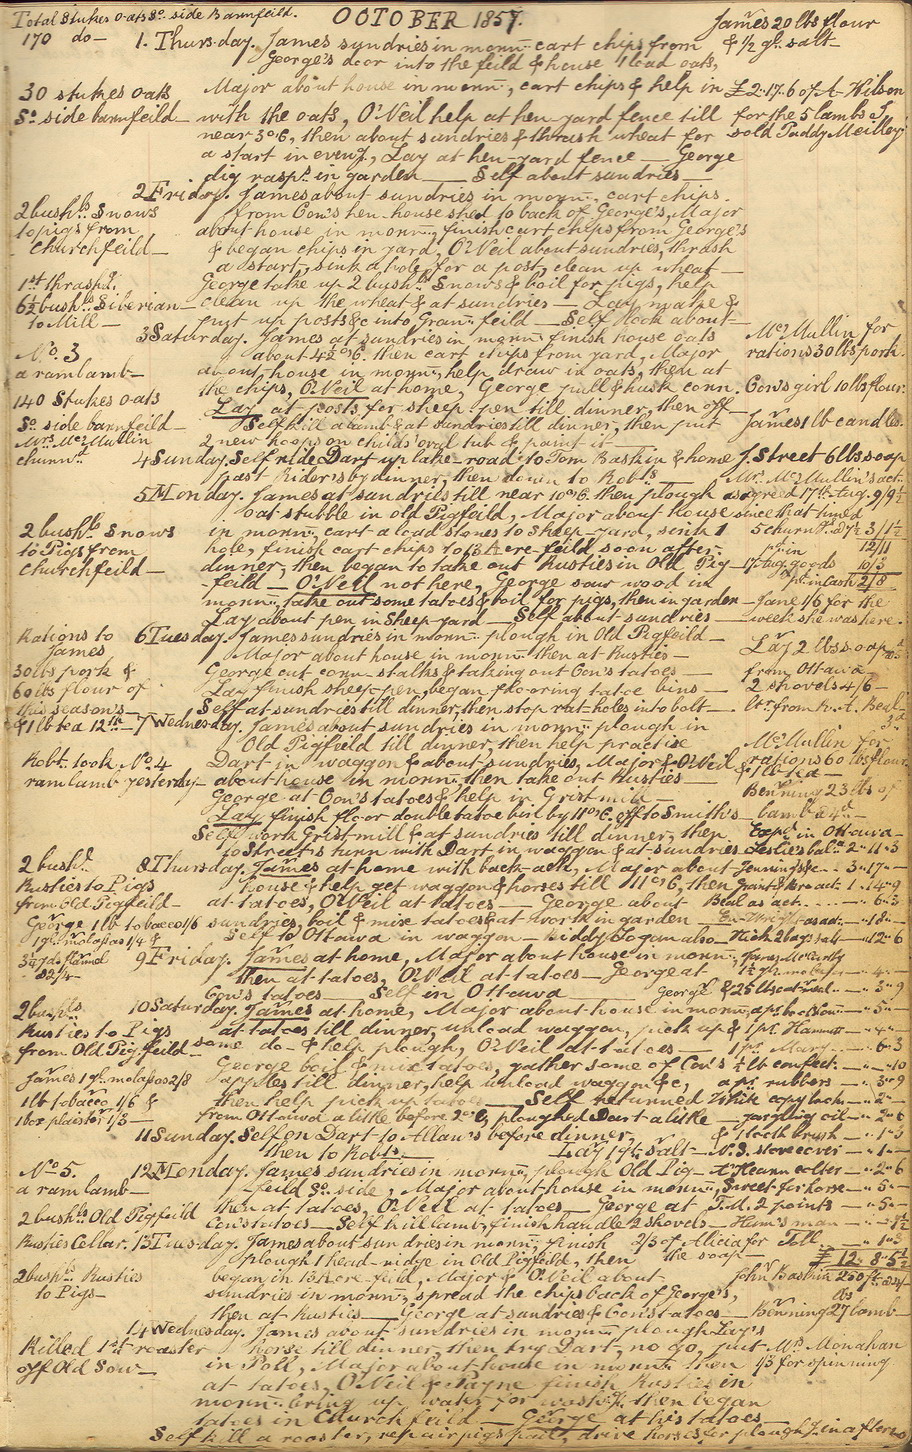 Total Stukes oats So. side Barnfeild.
OCTOBER 1857.
James 20 lbs flour
& 1/2 gl. salt—
170 do—
1. Thursday. James sundries in mornn. cart chips from
George's door into the feild & house 1 load oats,
30 stukes oats
So. side barnfeild—
Major about house in mornn., cart chips & help in
with the oats, O'Neil help at hen-yard fence till
near 3 o'c, then about sundries & thrash wheat for
a start in eveng., Lay at hen-yard fence — George
dig raspt. in garden — Self about sundries —
£2.17.6 of A. Wilson
for the 5 lambs I
sold Paddy Meilley
2 Friday. James about sundries in mornn. cart chips
from Con's hen-house shed to back of George's, Major
about house in mornn., finish cart chips from George's
& began chips in yard, O'Neil about sundries, thrash
a start, sink a hole for a post, clean up wheat—
George take up 2 bushls. Snows & boil for pigs, help
clean up the wheat & at sundries — Lay make &
put up posts &c into Grann. feild — Self look about—
2 bushls. Snows
to pigs from
Churchfeild—
1st thrashd.
6½ bushls. Siberian
to Mill—
3 Saturday. James at sundries in mornn. finish house oats
about 4½ o'c. then cart chips from yard, Major
about house in mornn., help draw in oats, then at
the chips, O'Neil at home, George pull & husk corn.
Lay at posts for sheep pen till dinner, then off—
Self kill a lamb & at sundries till dinner, then put
2 new hoops on childs' oval tub & paint it—
No. 3
a ram lamb—
140 Stukes oats
So. side barnfeild—
Mrs. McMullin
churnn.
McMullin for
rations 30 lbs pork.
Con's girl 10 lbs flour.
James 1 lb candles.
4 Sunday. Self ride Dart up lake-road to Tom Baskin & home
past Rider's by dinner, then down to Robts.—
J. Street 6 lbs soap
Mr. McMullin's act.
agreed 17th Aug. 9/9½
since that time
5 churn
3/1½
12/11
17 Aug. goods 10/3
pd. in cash 2/8
5 Monday. James at sundries till near 10 o'c. then plough
oat stubble in old Pigfeild, Major about house
in mornn., cart a load stones to Sheep-yard, sink 1
hole, finish cart chips to 13 Acre-feild soon after
dinner, then began to take out Rusties in Old Pig
-feild — O'Neil not here, George saw wood in
mornn., take out some tatoes & boil for pigs, then in garden
Lay about pen in Sheep yard — Self about sundries—
2 bushls. Snows
to Pigs from
Churchfeild—
—Jane 1/6 for the
week she was here.
6 Tuesday. James sundries in mornn. plough in Old Pigfeild—
Major about house in mornn. then at Rusties—
George cut corn-stalks & taking out Con's tatoes—
Lay finish sheep-pen, began flooring tatoe bins—
Self at sundries till dinner, then stop rat-holes into bolt—
Rations to
James
30 lbs pork &
60 lbs flour of
this season's—
& 1 lb tea 12th—
Lay 2 lbs soap
from Ottawa
2 shovels 4/6—
7 Wednesday. James about sundries in mornn. plough in
Old Pigfeild till dinner, then help practise
Dart in waggon & about sundries, Major & O'Neil
about house in mornn. then take out Rusties—
George at Con's tatoes & help in Gristmill—
Lay finish floor double tatoe bin by 11 o'c. off to Smith's—
Self work Gristmill & at sundries till dinner, then
to Street's turn with Dart in waggon & at sundries
Robt. took No. 4
ram lamb yesterday—
McMullin for
rations 60 lbs flour
& 1 lb tea—
Benning 23 lbs of
lamb
Expd. in Ottawa—
Leslie's bal. 2..11..3
8 Thursday. James at home with back-ach, Major about
house & help get waggon & horses till 11 o'c, then
at tatoes, O'Neil at tatoes — George about
sundries, boil & mix tatoes & at work in garden—
Self to Ottawa in waggon — Biddy Hogan also—
2 bushl.
Rusties to Pigs
from Old Pigfeild—
George 1 lb tobacco 1/6
1 gl. molasses 1/4 &
3¼ yds flannel
Jennings &c — 3..17..—
1..14..9
Beul as act. — ..6..3
as ad. — ..18..—
Nick 2 bags salt — ..12..6
9 Friday. James at home, Major about house in mornn.,
then at tatoes, O'Neil at tatoes — George at
Con's tatoes — Self in Ottawa —
James McCarthy
1½ gl. molasses — ..4..—
George & 25 lbs oatmeal — ..3..9
10 Saturday. James at home, Major about house in mornn.,
at tatoes till dinner, unload waggon, pick up &
some do— & help plough, O'Neil at tatoes—
George boil & mix tatoes, gather some of Con's
apples till dinner, help unload waggon &c,
then help pick up tatoes — Self returned
from Ottawa a little before 2 o'c, ploughed Dart a little
2 bushls.
Rusties to Pigs
from Old Pigfeild—
James 1 gl. molasses 2/8
1 lb tobacco 1/6 &
1 box plaister 1/3—
— ..5..—
— ..4..—
1 pr. Mary — ..6..3
½ lb confect. — ..—..10
a pr. rubbers — ..3..9
White — ..2..—
gargling oil — ..2..6
& 1 tooth brush — ..1..3
11 Sunday. Self on Dart to Allan's before dinner
then to Robts.
Lay 1 gl. salt—
N.S. stove cover — ..1..—
12 Monday. James sundries in mornn., plough Old Pig-
feild So. side, Major about house in mornn.,
then at tatoes, O'Neil at tatoes — George at
Con's tatoes — Self kill lamb, finish handle 2 shovels—
No. 5.
a ram lamb—
2 bushls. Old Pigfeild
Rusties Cellar.
colter — ..2..6
Sweet for horse — ..5..—
J.M. 2 points — ..5..—
Ham's man — ..—..7½
13 Tuesday. James about sundries in mornn. finish
plough 1 head-ridge in Old Pigfeild, then
began in 13 Acre-feild, Major & O'Neil about
sundries in mornn., spread the chips back of George's,
then at Rusties — George at sundries & Con's tatoes—
2 bushls. Rusties
to Pigs—
2/3 of Alicia for Toll — ..1..3
the soap—
£12..8..5½
John Baskin 250 ft.
Benning 27 lbs lamb—
14 Wednesday. James about sundries in mornn. plough Lay's
horse till dinner, then try Dart, no go, put
in Poll, Major about house in mornn. then
at tatoes, O'Neil & Payne finish Rusties in
mornn. bring up water for washg., then began
tatoes in Churchfeild — George at his tatoes—
Self kill a rooster, repair pigs
drive horses for plough
Killed 1st rooster
off Old Sow—
Mrs. Monahan
1/3 for spinning